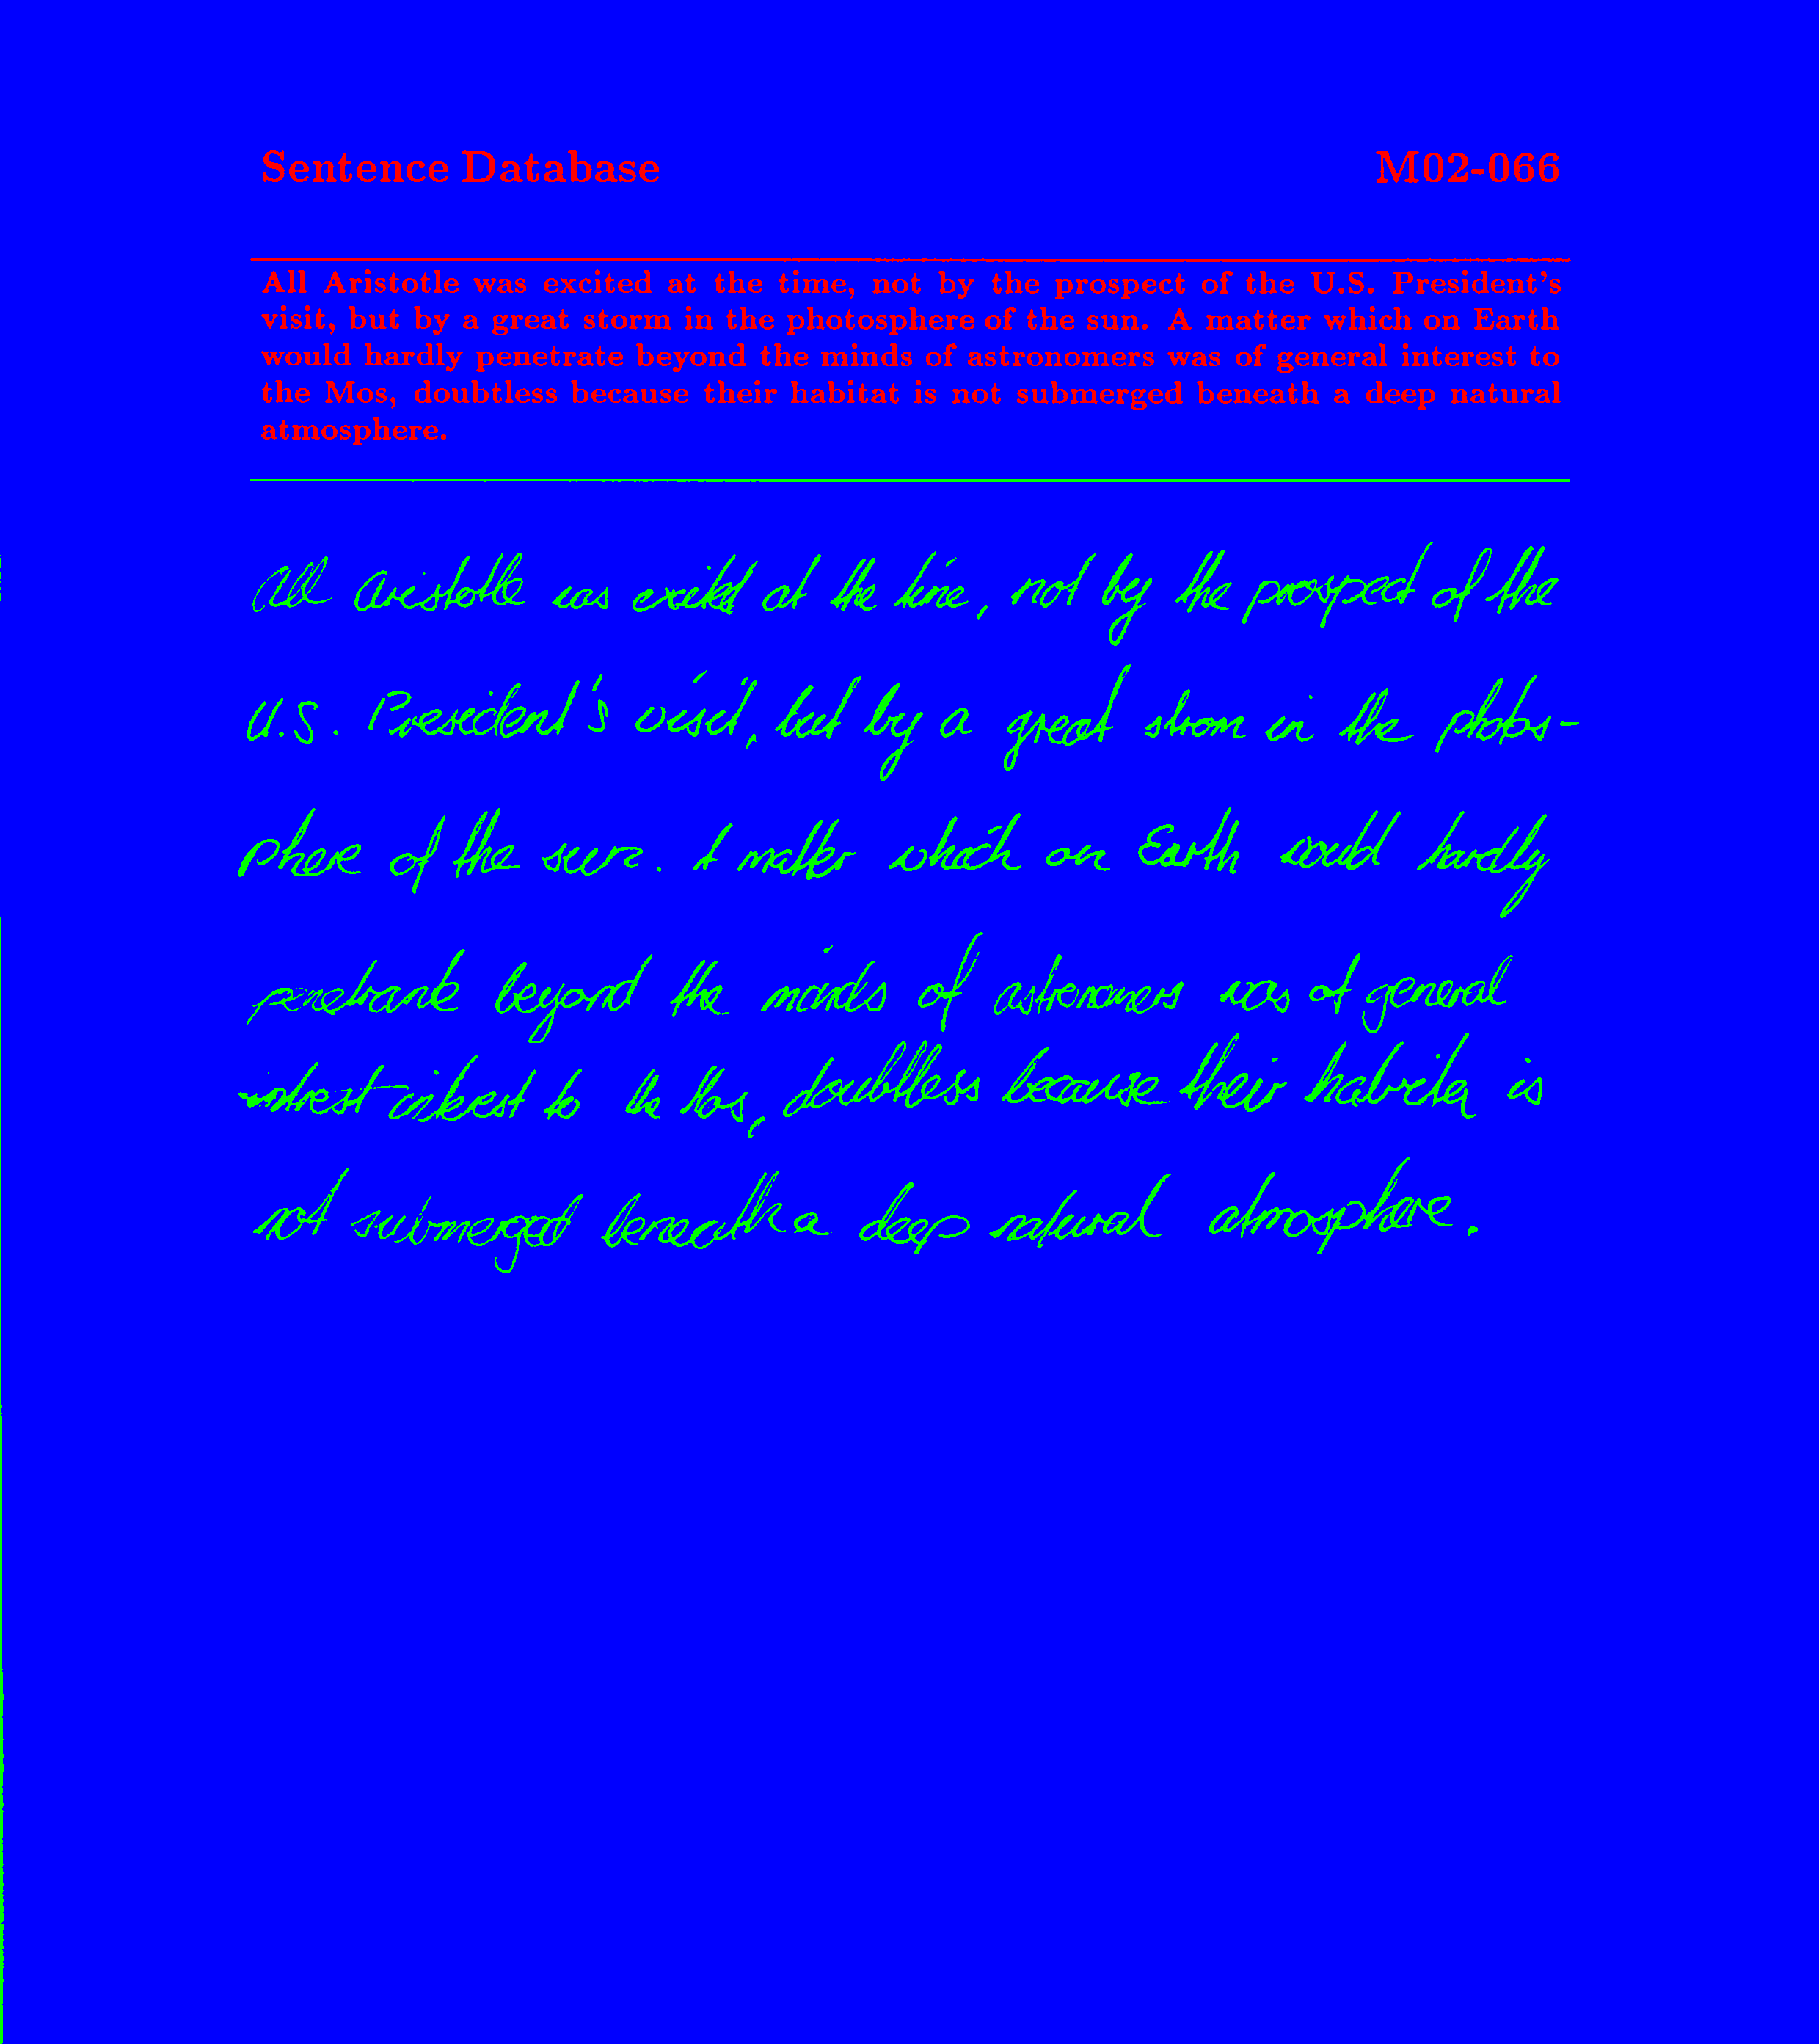 Sentence Database M02-066
All Aristotle was excited at the time, not by the prospect of the U.S. President's
visit, but by a great storm in the photosphere of the sun. A matter which on Earth
would hardly penetrate beyond the minds of astronomers was of general interest to
the Mos, doubtless because their habitat is not submerged beneath a deep natural
atmosphere.
All Aristotle was excited at the time, not by the prospect of the
U.S. President's visit, but by a great strom in the photos-
phere of the sun. A matter which on Earth would hardly
penetrate beyond the minds of astronomers was of general
intrest interest to the Mos, doubtless because their habita is
not submerged beneath a deep natural atmosphere.